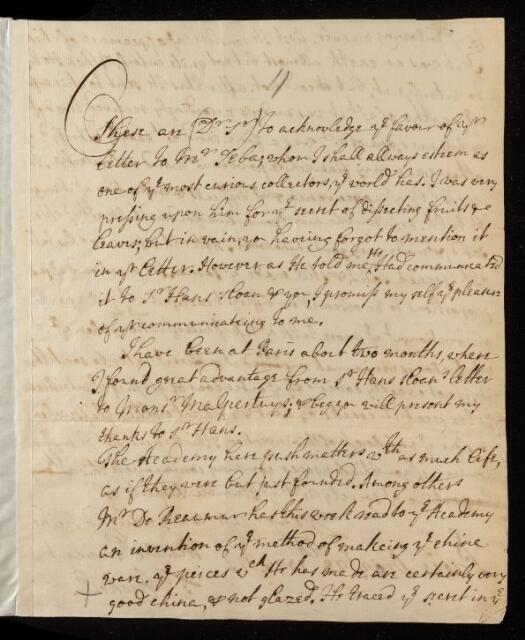 11
These are (Dr Sr) to acknowledge ye favour of yr
letter to Mr Seba; whom I shall allways esteem as
one of ye most curious collectors, ye world has. I was very
pressing upon him for ye secret of dissecting fruits &
leaves; but in vain, you having forgot to mention it
in yr letter. However as He told me, He Had communicated
it to Sr Hans Sloan & you, I promiss my self ye pleasure
of yr communicateing to me.
I have been at Paris about two months, where
I found great advantage from Sr Hans Sloans letter
to Maupertuys; & beg you will present my
thanks to Sr Hans.
The Academy here push matters wth as much life,
as if they were but just founded. Among others
Mr De Reaumur has this week read to ye Academy
an invention of ye method of makeing ye chine
ware. ye pieces wch He has made are certainly very
good china, & not glazed. He traced ye secret in ye